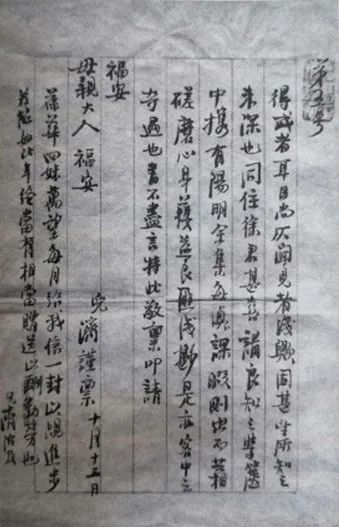 第五号
得識者耳目尚仄聞見者淺 固甚 所知之
未深也同住徐君甚喜講良知之學篋
中携有陽明全集每 課暇則出而相
磋磨心身獲益良匪淺尠是亦客中之
奇遇也書不盡言特此敬稟叩請
福安
母親大人 福安
兒 濟謹稟 十月十三日
葆華四妹萬望每月給我信一封以覘進步
若能如此年終當有相當贈送以酬勤勞也
兄濟